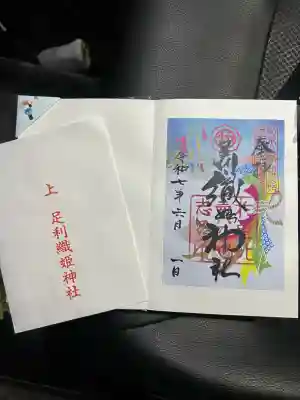 奉拝
足利織姫神社
令和七年六月一日
上 足利織姫神社